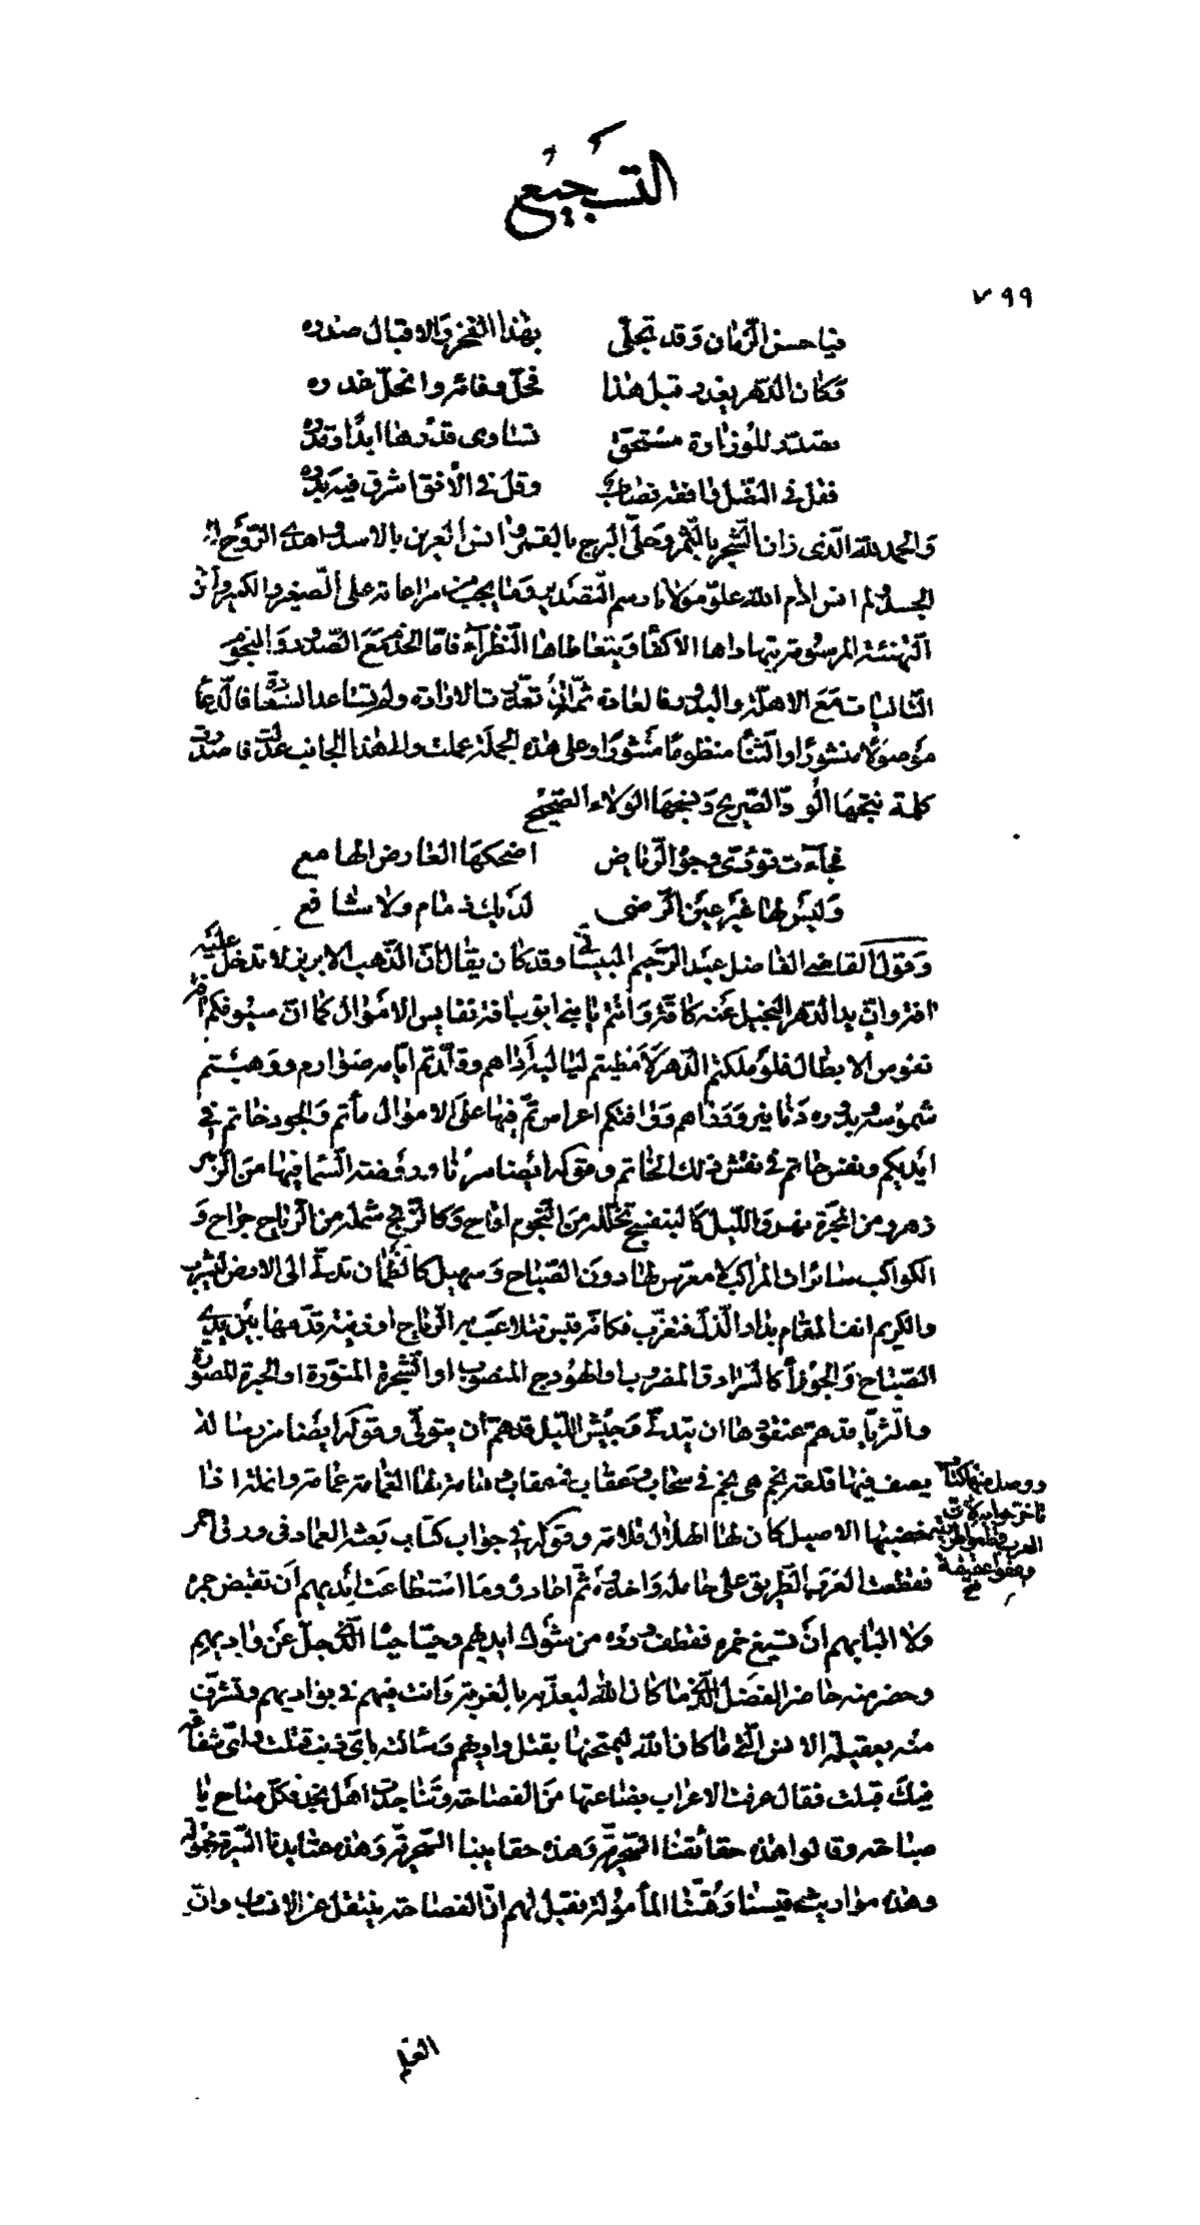 التسجيع
٧٩٩
فيا حسن الزمان وقد تجلى بهذا الفخر والاقبال صدره
وكان الدهر يغدر قبل هذا فحل وفائه وانحل غدره
تصدر للوزارة مستحق تساوى قدرها ابدا وقدره
فقل في النصل وافقه نصاب وقل في الأفق اشرق فيه بدره
والحمد لله الذي زان الشجر بالثمر وحلى البرج بالقمر وانس العرين بالاسد واهدى الروح الى
الجسد ولم انس ادام الله علو مولانا رسم التصدير وما يجب من مراعاته على الصغير والكبير وان
التهنئة المرسومة يتهاداها الاكفاء ويتعاطاها النظرآء فاما الخدم مع الصدور والنجوم
التاليات مع الاهلة والبدور فالعادة ثم ان تعذرت الارادة ولم تساعد السعادة فالدعا
مرصوعا منشورا والثنا منظوما منثورا وعلى هذه الجملة عملت والى هذا الجانب عدلت فاصدرت
كلمة نتجها الود الصريح ونسجها الولاء الصحيح
فجآءت تؤدي وجوه الرياض اضحكها العارض الهامع
وليس لها غير عين الرضى لديك ذمام ولا شافع
وقول القاضي الفاضل عبد الرحيم البيساني وقد كان يقال ان الذهب الابريز لا تدخل عليه
افة وان يد الدهر البخيل عنه كافة وانتم يا بني ايوب افة نفايس الاموال كما ان سيوفكم افة
نفوس الابطال فلو ملكتم الدهر لامطيتم لياليه اداهم وقلدتم ايامه صوارم ووهبتم
شموسه وبدوره دنانير ودراهم واوقاتكم اعراس تم فيها على الاموال مأتم والجود خاتم في
ايديكم ونفس حاتم في نقش ذلك الخاتم وقوله ايضا سرنا وروضة السما فيها من الزهر
زهر ومن المجرة نهر والليل كالبنفسج تخلله من النجوم اقاح وكالزنج شمله من الرماح جراح و
الكواكب سائرات المراكب لا معرس لها دون الصباح وسهيل كالظمآن تدلى الى الارض ليشرب
والكريم انف المقام بدار الذل فتغرب فكانه قبس تتلاعب به الرياح او ذبية قدمها بين يدي
الصباح والجوزآ كالسرادق المضروب او الهودج المنصوب او الشجرة المنورة او الحبرة المصورة
والثريا قد هم عنقودها ان يتدلى وجيش الليل قد هم أن يتولى وقوله ايضا من رسالة
يصف فيها قلعة نجم هي نجم في سحاب وعقاب في عقاب وهامة لها الغمامة عمامة وانملة اذا
خضبها الاصيل كان لها الهلال قلامة وقوله في جواب كتاب بعثه العماد في ورق احمر
فقطعت العرب الطريق على حامله واخذوه ثم اعادوه وما استطاعت ايديهم أن تقبض جمره
ولا البابهم ان تسيغ خمره فقطف ورده من شوك ايديهم وحيا حيا الذي جل عن واديهم
وحضر منه حاضر الفضل الذي ما كان الله ليعذبه بالغربة وانت فيهم في بواديهم وتشرفت
منه بعقيلة الانس التي ما كان الله ليمتحنها بقتل واديهم وسالته باي ذنب قتلت واي شفاعة
فيك قبلت فقال عرفت الاعراب بضاعتها من الفصاحة وتناجدت اهل نجد فكل صاح يا
صباحه وقالوا هذه حقائقنا السحرية وهذه حقايبنا السحرية وهذه عتابدنا السرية مخبوله
وهذه مواريث قيسنا وقسنا المأمولة فقيل لهم ان الفصاحة ينتقل عن الانساب وان
ووصل منها كتاب
تاخر جوابه لان
العرب قطعوا طريقه
وعقوا عقيقه
صح
العلم